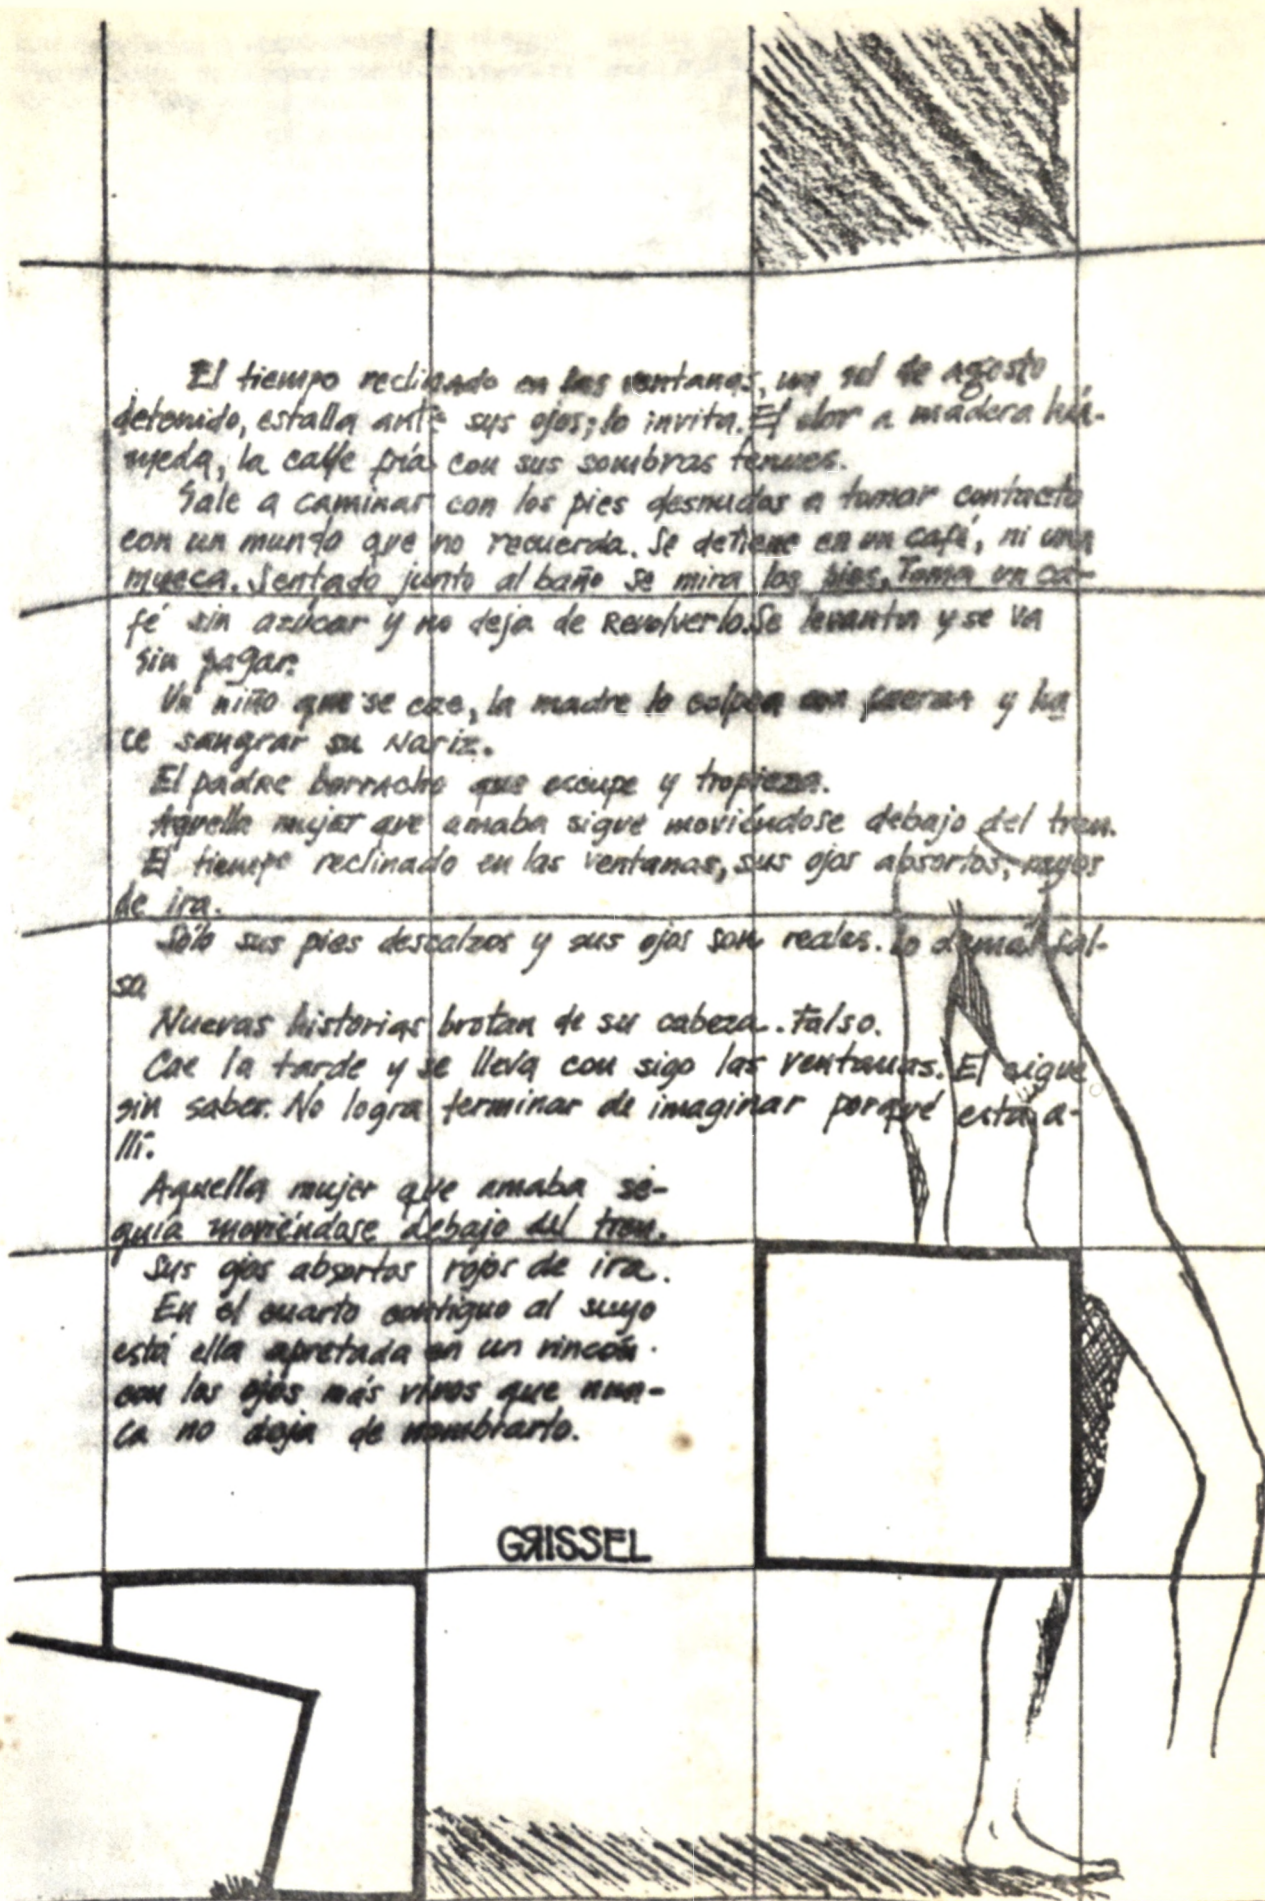 El tiempo reclinado en las ventanas, un sol de agosto
detenido, estalla ante sus ojos; lo invita. El olor a madera hú-
meda, la calle fría con sus sombras tenues.
Sale a caminar con los pies desnudos a tomar contacto
con un mundo que no recuerda. Se detiene en un café, ni una
mueca. Sentado junto al baño se mira los pies. Toma un ca-
fé sin azúcar y no deja de Revolverlo. Se levanta y se va
sin pagar.
Un niño que se cae, la madre lo golpea con fuerza y ha
ce sangrar su Nariz.
El padre borracho que escupe y tropieza.
Aquella mujer que amaba sigue moviéndose debajo del tren.
El tiempo reclinado en las ventanas, sus ojos absortos, rayos
de ira.
Sólo sus pies descalzos y sus ojos son reales. Lo demás fal-
sa
Nuevas historias brotan de su cabeza. Falso.
Cae la tarde y se lleva con sigo las ventanas. El sigue
sin saber. No logra terminar de imaginar porqué está a-
llí.
Aquella mujer que amaba se-
guía moviéndose debajo del tren.
Sus ojos absortos rojos de ira.
En el cuarto contiguo al suyo
está ella apretada en un rincón.
con los ojos más vivos que nun-
ca no deja de nombrarlo.
GRISSEL